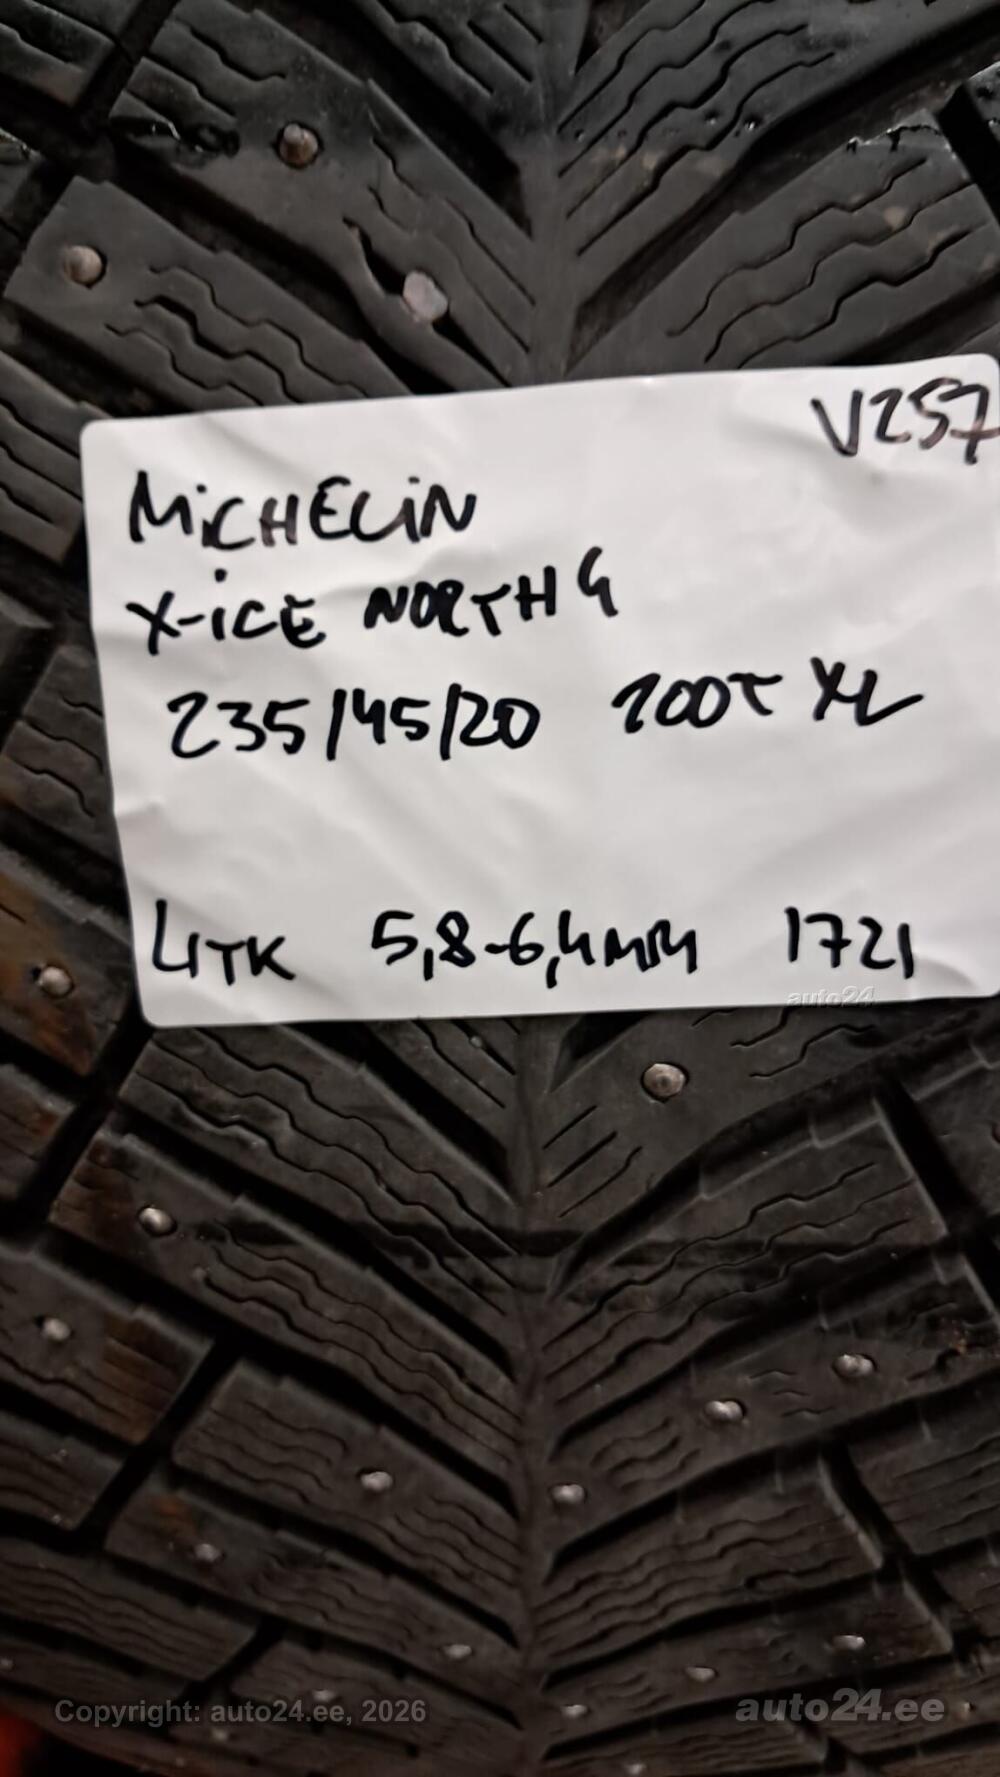 V257
MiCHELiN
X-iCE NORTH 4
235/45/20 100T XL
4TK 5,8-6,4mm 1721
auto24
Copyright: auto24.ee, 2026
auto24.ee